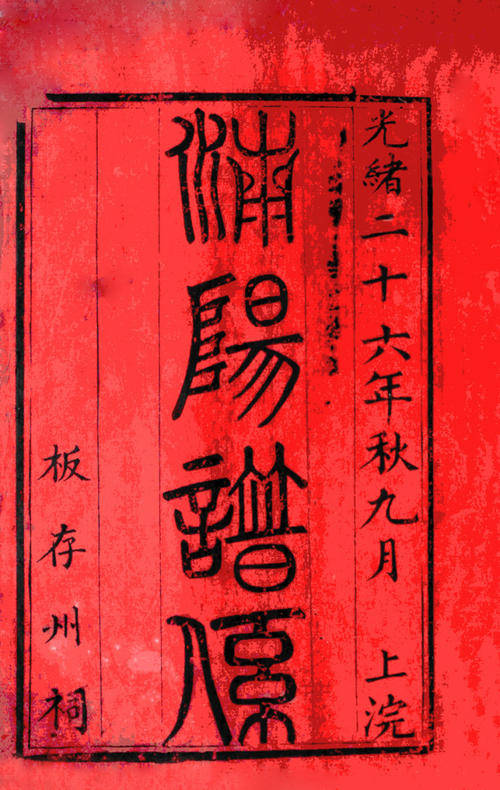 光緒二十六年秋九月 上浣
浦陽譜係
板存州祠